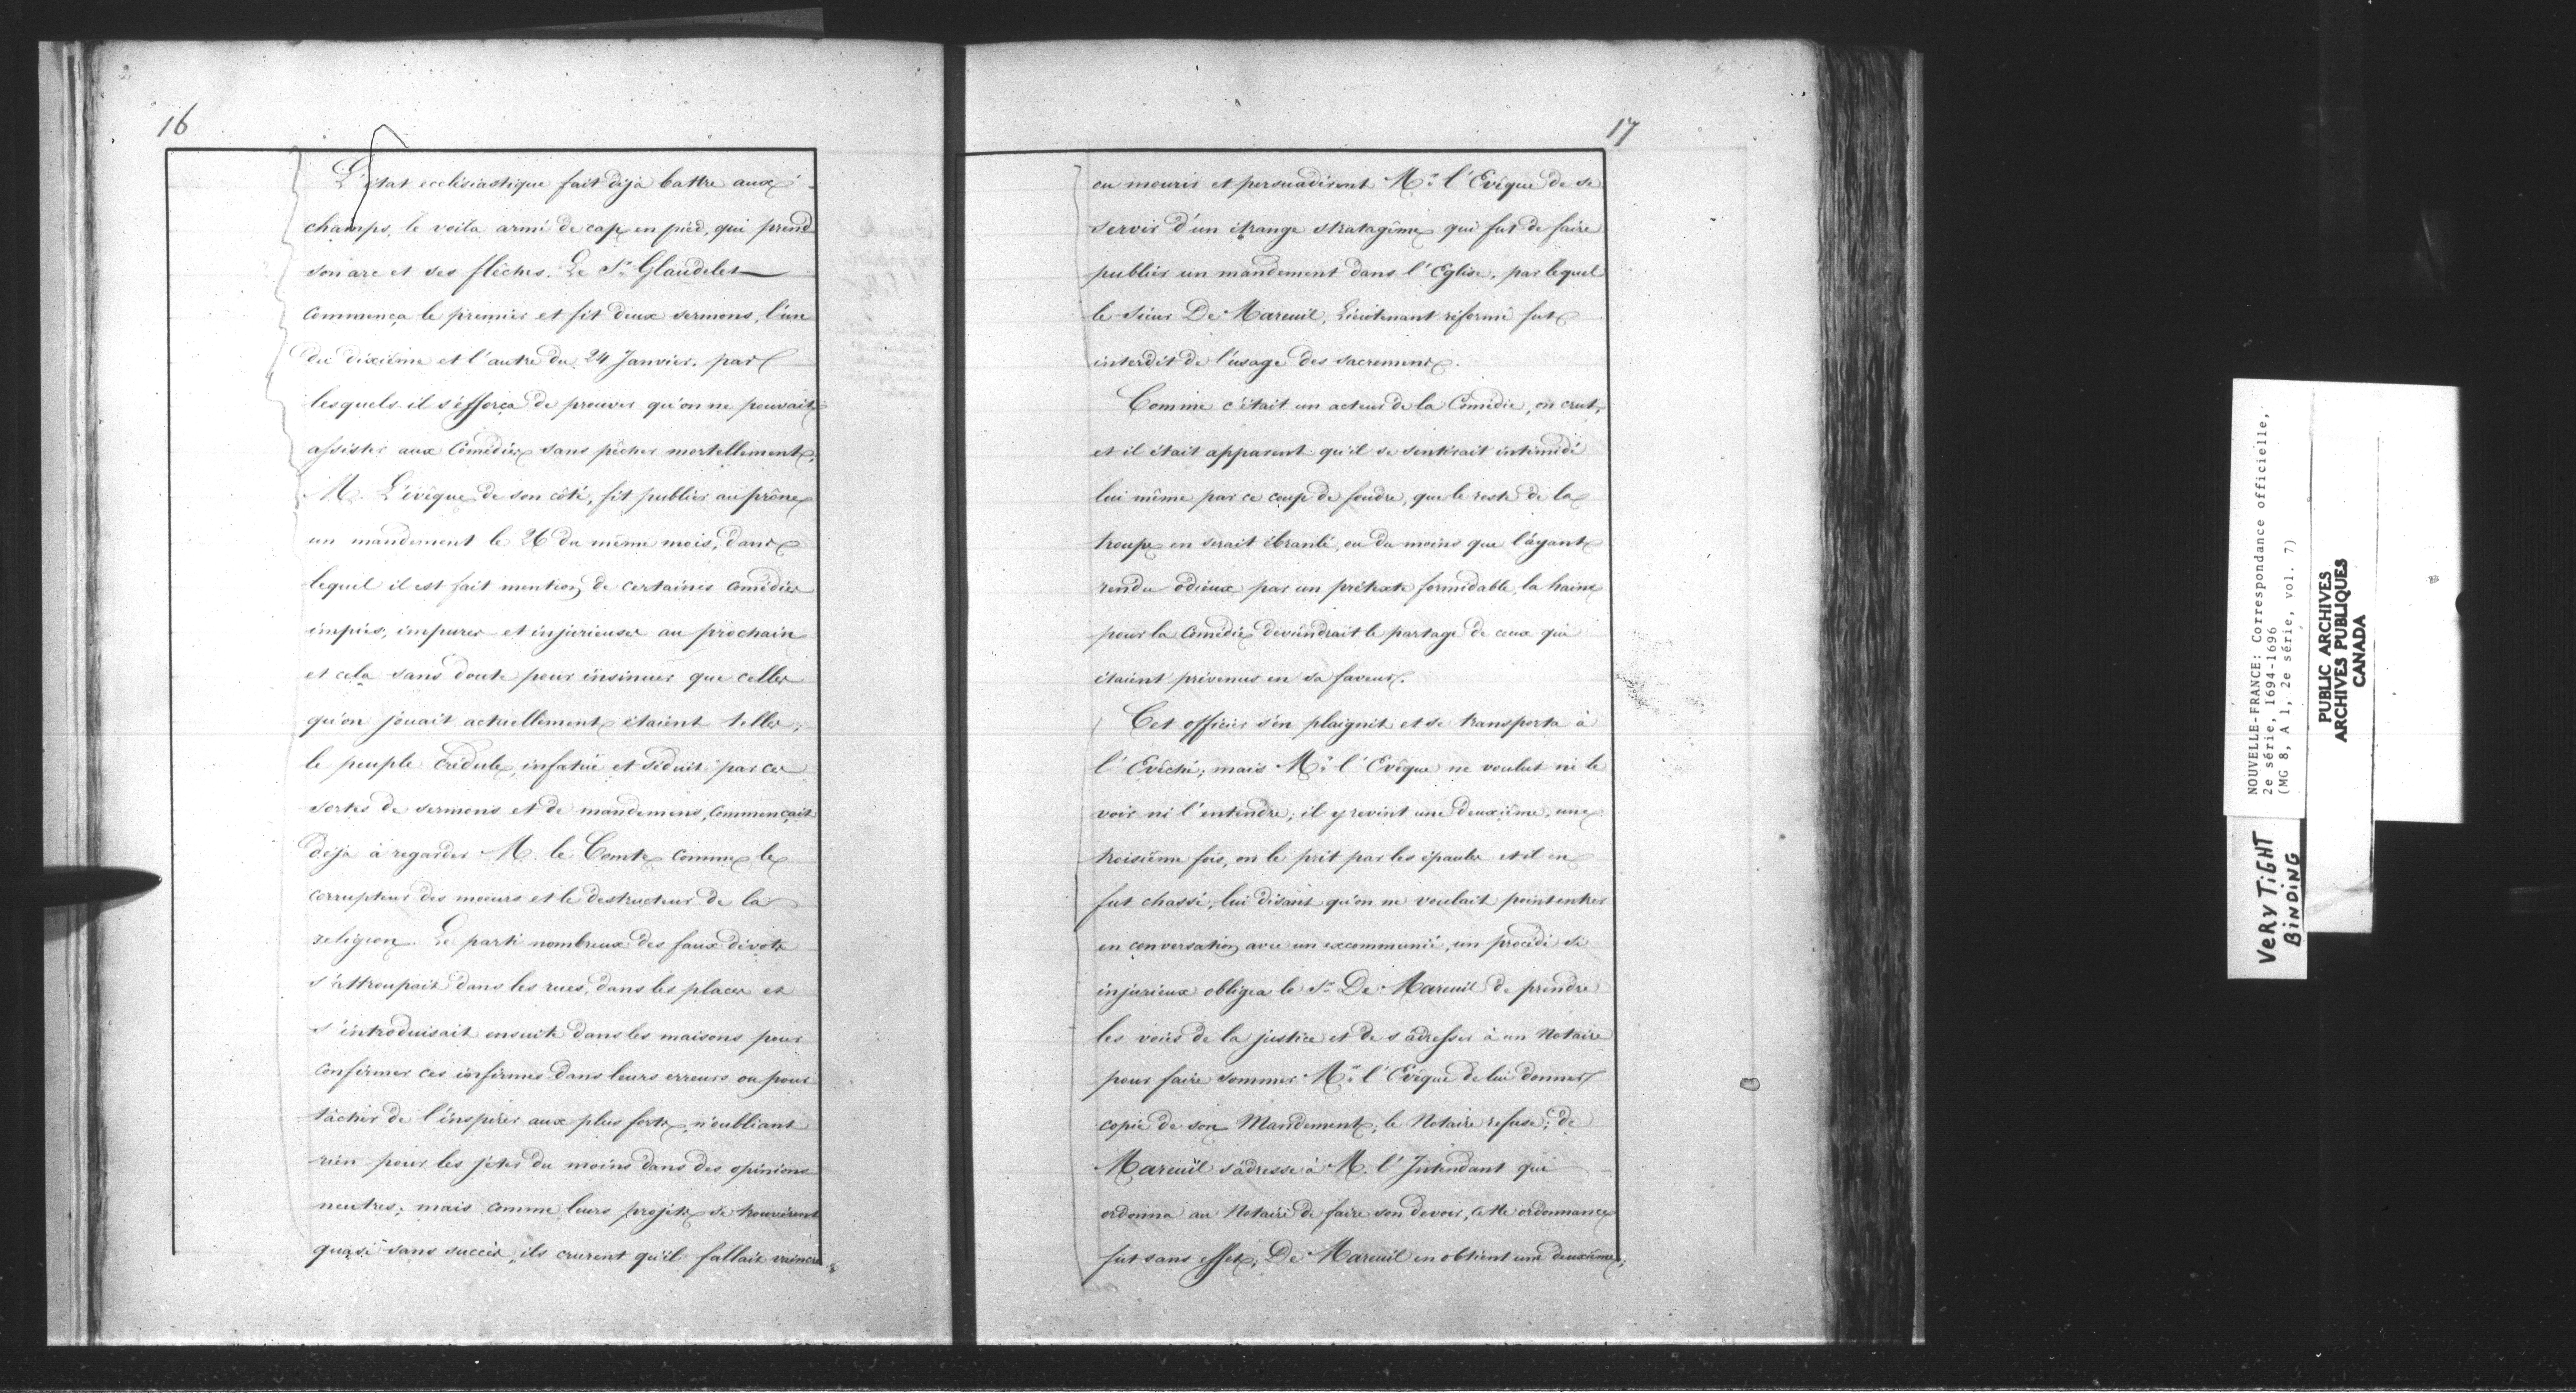 16
L'état ecclésiastique fait déjà battre aux
champs, le voila armé de cap en pied, qui prend
son arc et ses flêches. Le Sr. Glaudelet
commença le premier et fit deux sermons, l'un
du dixième et l'autre du 24 Janvier. par
lesquels il s'efforça de prouver qu'on ne pouvait
assister aux Comédies sans pêcher mortellement.
M. L'évêque de son côté, fit publier au prône
un mandement le 26 du même mois, dans
lequel il est fait mention de certaines comédies
impies, impures et injurieuses au prochain
et cela sans doute pour insinuer que celles
qu'on jouait actuellement étaient telles;
le peuple crédule, infatué et séduit par ces
sortes de sermons et de mandemens, commençait
déjà à regarder M. le Comte comme le
corrupteur des moeurs et le destructeur de la
religion. Le parti nombreux des faux dévots
s'attroupait dans les rues, dans les places et
s'introduisait ensuite dans les maisons pour
confirmer ces infirmes dans leurs erreurs ou pour
tâcher de l'inspirer aux plus forts, n'oubliant
rien pour les jeter du moins dans des opinions
neutres; mais comme leurs projets se trouvèrent
quasi sans succès, ils crurent qu'il fallait vaincre
17
ou mourir et persuadèrent Mr. l'Evêque de se
servir d'un étrange stratagême qui fut de faire
publier un mandement dans l'Eglise, par lequel
le Sieur De Mareuil, Lieutenant réformé fut
interdit de l'usage des sacremens.
Comme c'était un acteur de la Comédie, on crut,
et il était apparent qu'il se sentirait intimidé
lui même par ce coup de foudre, que le reste de la
troupe en serait ébranlé, ou du moins que l'ayant
rendu odieux par un prétexte formidable, la haine
pour la Comédie deviendrait le partage de ceux qui
étaient prévenus en sa faveur.
Cet officier s'en plaignit et se transporta à
l'Evêché; mais Mr. l'Evêque ne voulut ni le
voir ni l'entendre; il y revint une deuxième, une
troisième fois, on le prit par les épaules et il en
fut chassé, lui disant qu'on ne voulait point entrer
en conversation avec un excommunié, un procédé si
injurieux obligea le Sr. De Mareuil de prendre
les voies de la justice et de s'adresser à un Notaire
pour faire sommer Mr. l'Evêque de lui donner
copie de son Mandement; le Notaire refuse; de
Mareuil s'adresse à M. l'Intendant qui
ordonna au Notaire de faire son devoir, cette ordonnance
fut sans effet; De Mareuil en obtient une deuxième;
NOUVELLE-FRANCE: Correspondance officielle,
2e série, 1694-1696
(MG 8, A 1, 2e série, vol. 7)
PUBLIC ARCHIVES
ARCHIVES PUBLIQUES
CANADA
VERY TIGHT
BINDING